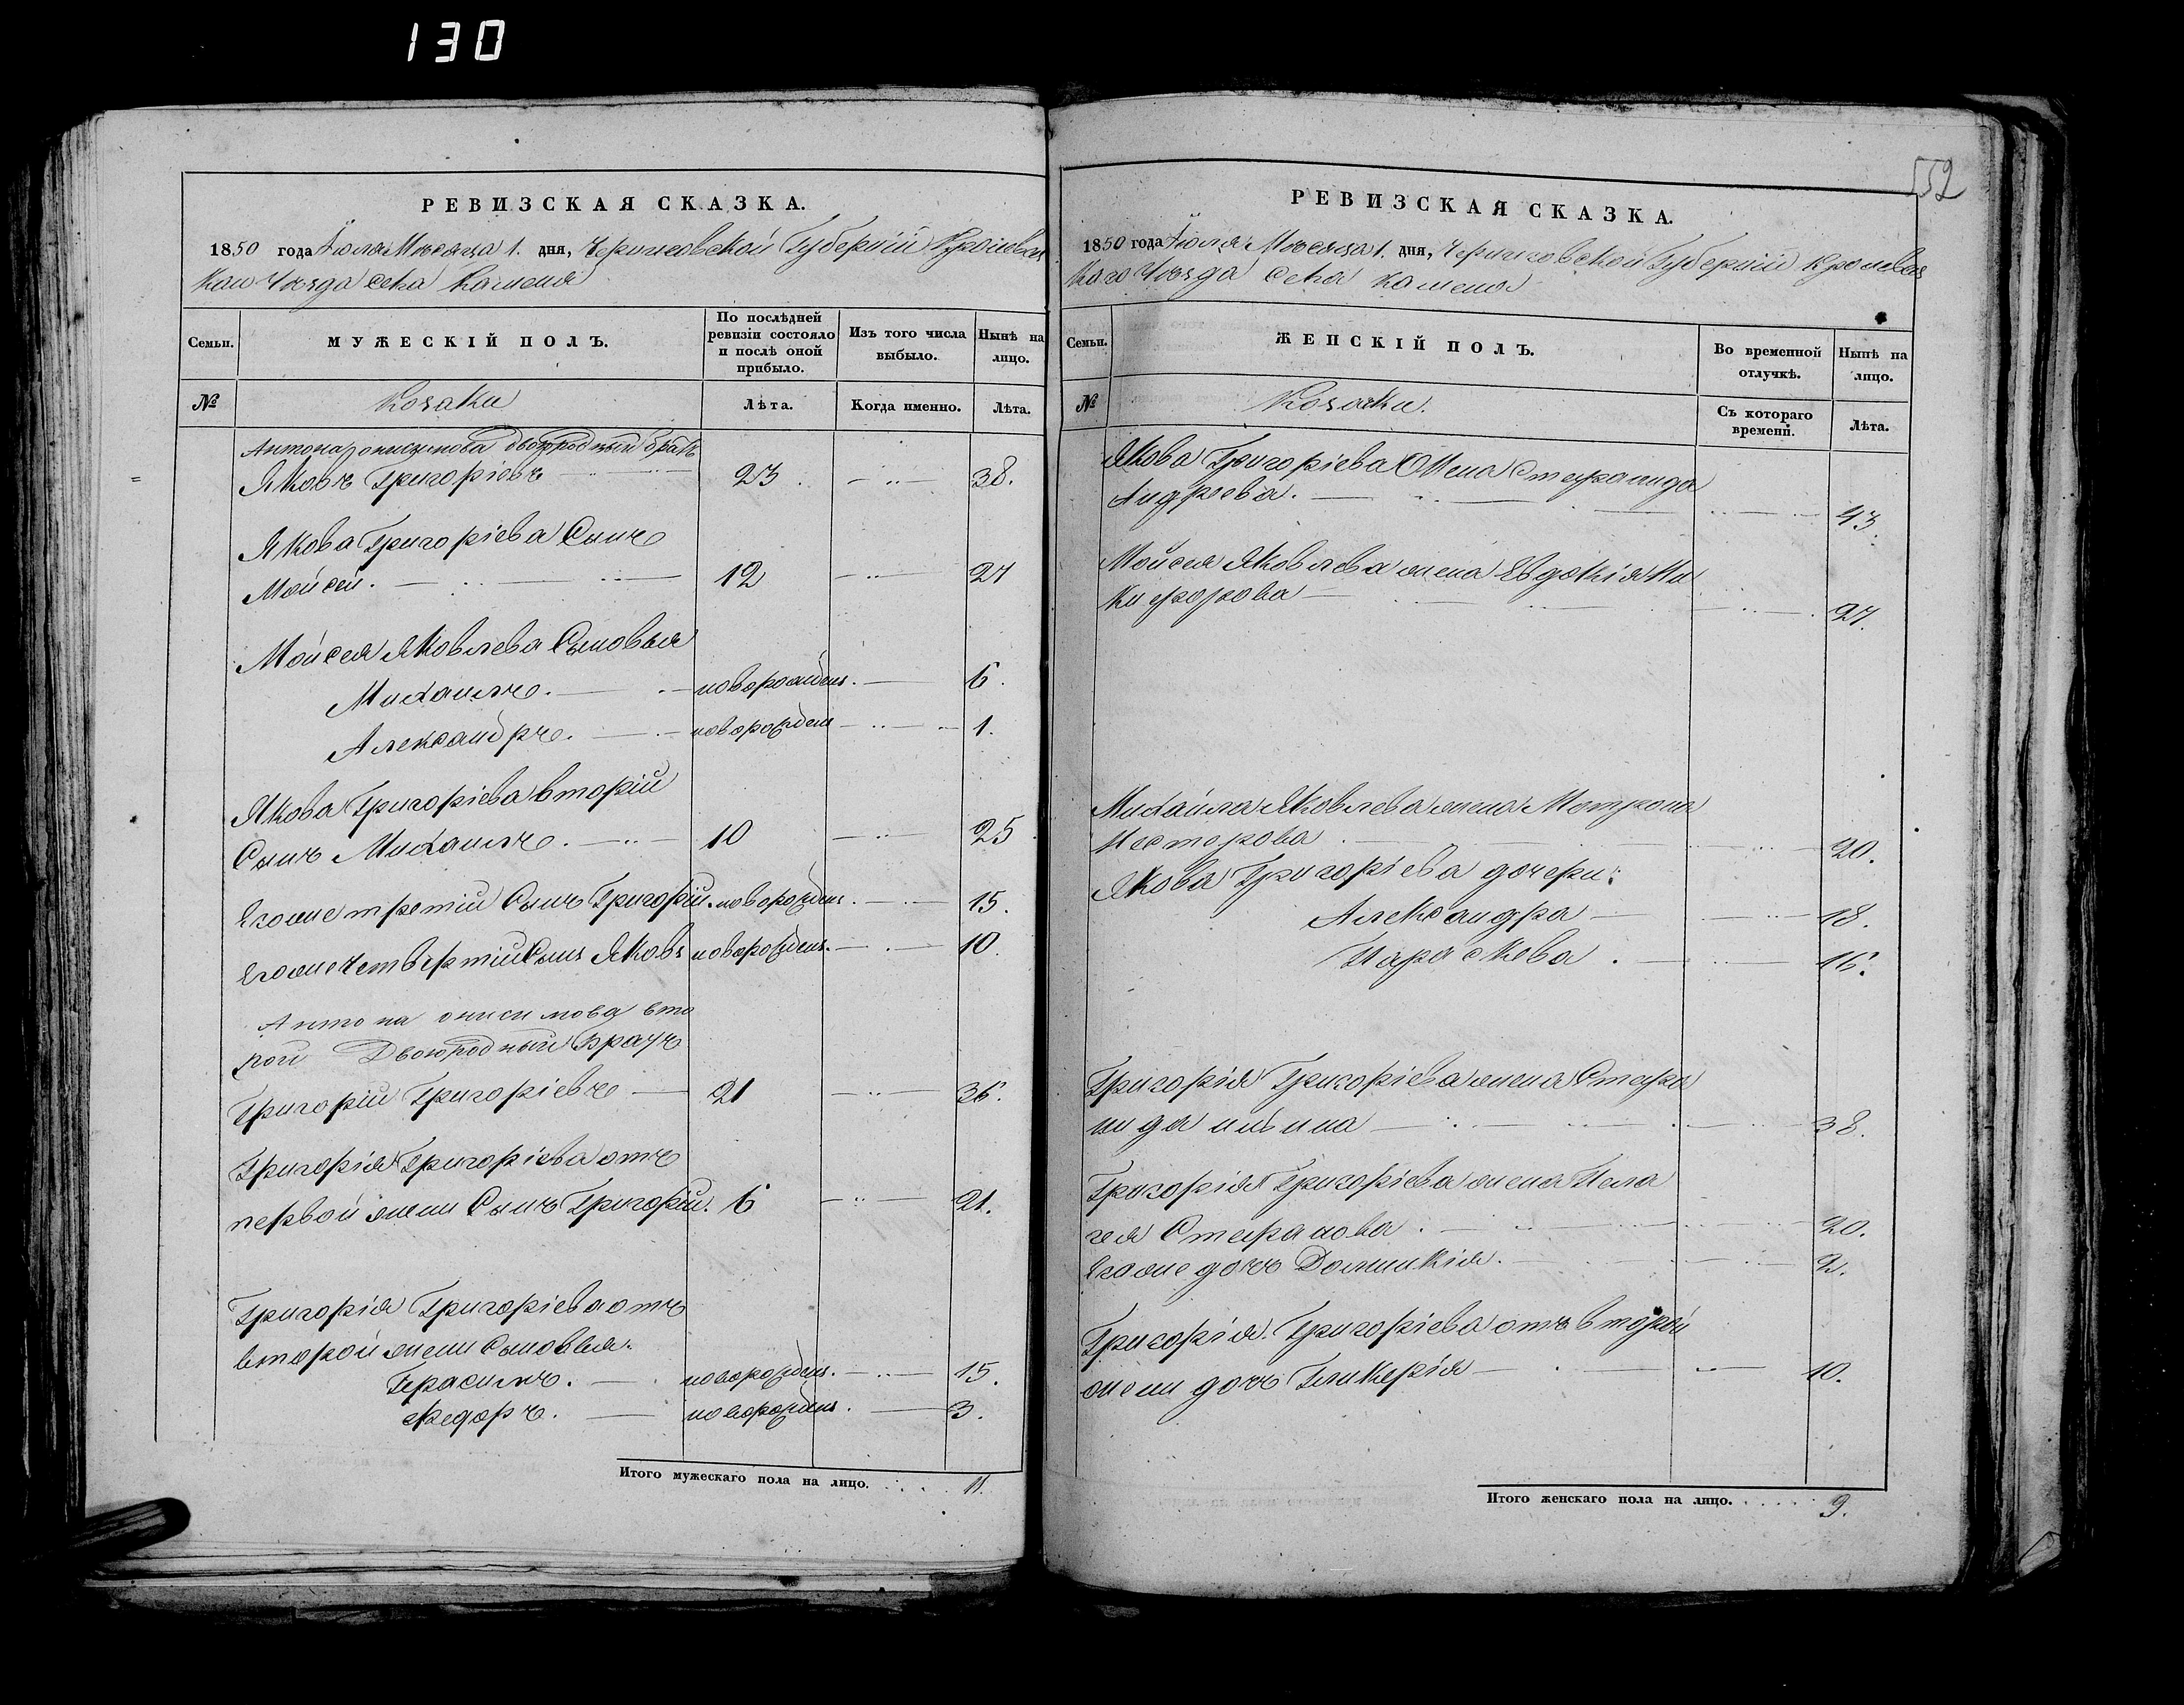 130
РЕВИЗСКАЯ СКАЗКА.
1850 года Іюля Мѣсяца 1. дня, Черниговской Губерніи Кролевец
каго Уѣзда села Каменя
Семьи.
МУЖЕСКІЙ ПОЛЪ.
По послѣдней ревизіи состояло и послѣ оной прибыло.
Изъ того числа выбыло.
Нынѣ на лицо.
№
Козаки
Лѣта.
Когда именно.
Лѣта.
Антона Онисимова двоюродный братъ
Яковъ Григоріевъ 23. 38.
Якова Григоріева Сынъ
Мойсей. 12 27
Мойсея Яковлева Сыновья
Михаилъ. новорожден. 6.
Александръ. новорожден 1.
Якова Григоріева вторій
Сынъ Михаилъ. 10 25
Егоже третій Сынъ Григорій. новорожден. 15.
Егоже четвертій Сынъ Яковъ новорожден. 10.
Антона Онисимова вто
рой Двоюродный Братъ
Григорій Григоріевъ 21 36.
Григорія Григоріева отъ
первой жены Сынъ Григорій. 6 21.
Григорія Григоріева отъ
второй жены Сыновья.
Герасимъ. новорожден. 15.
Федоръ. новорожден. 3.
Итого мужескаго пола на лицо. 11.
552
РЕВИЗСКАЯ СКАЗКА.
1850 года Іюля Мѣсяца 1. дня, Черниговской Губерніи Кролевец
каго Уѣзда села Каменя
Семьи.
ЖЕНСКІЙ ПОЛЪ.
Во временной отлучкѣ.
Нынѣ на лицо.
№
Козаки.
Съ котораго времени.
Лѣта.
Якова Григоріева Жена Степанида
Андреева. 43.
Мойсея Яковлева жена Евдокія Ни
кифорова 27.
Михайла Яковлева жена Мотрона
Несторова 20.
Якова Григоріева дочери:
Александра 18.
Параскева. 16.
Григорія Григоріева жена Степа
нида 38.
Григорія Григоріева жена Пела
гея Степанова. 20.
Егоже дочь Домникія. 2.
Григорія Григоріева отъ второй
жены дочь Гликерія 10.
Итого женскаго пола на лицо. 9.